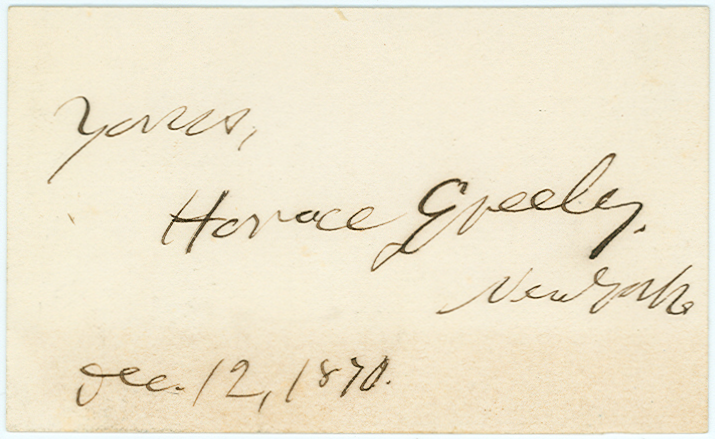 Yours,
Horace Greeley.
New York
Dec. 12, 1870.